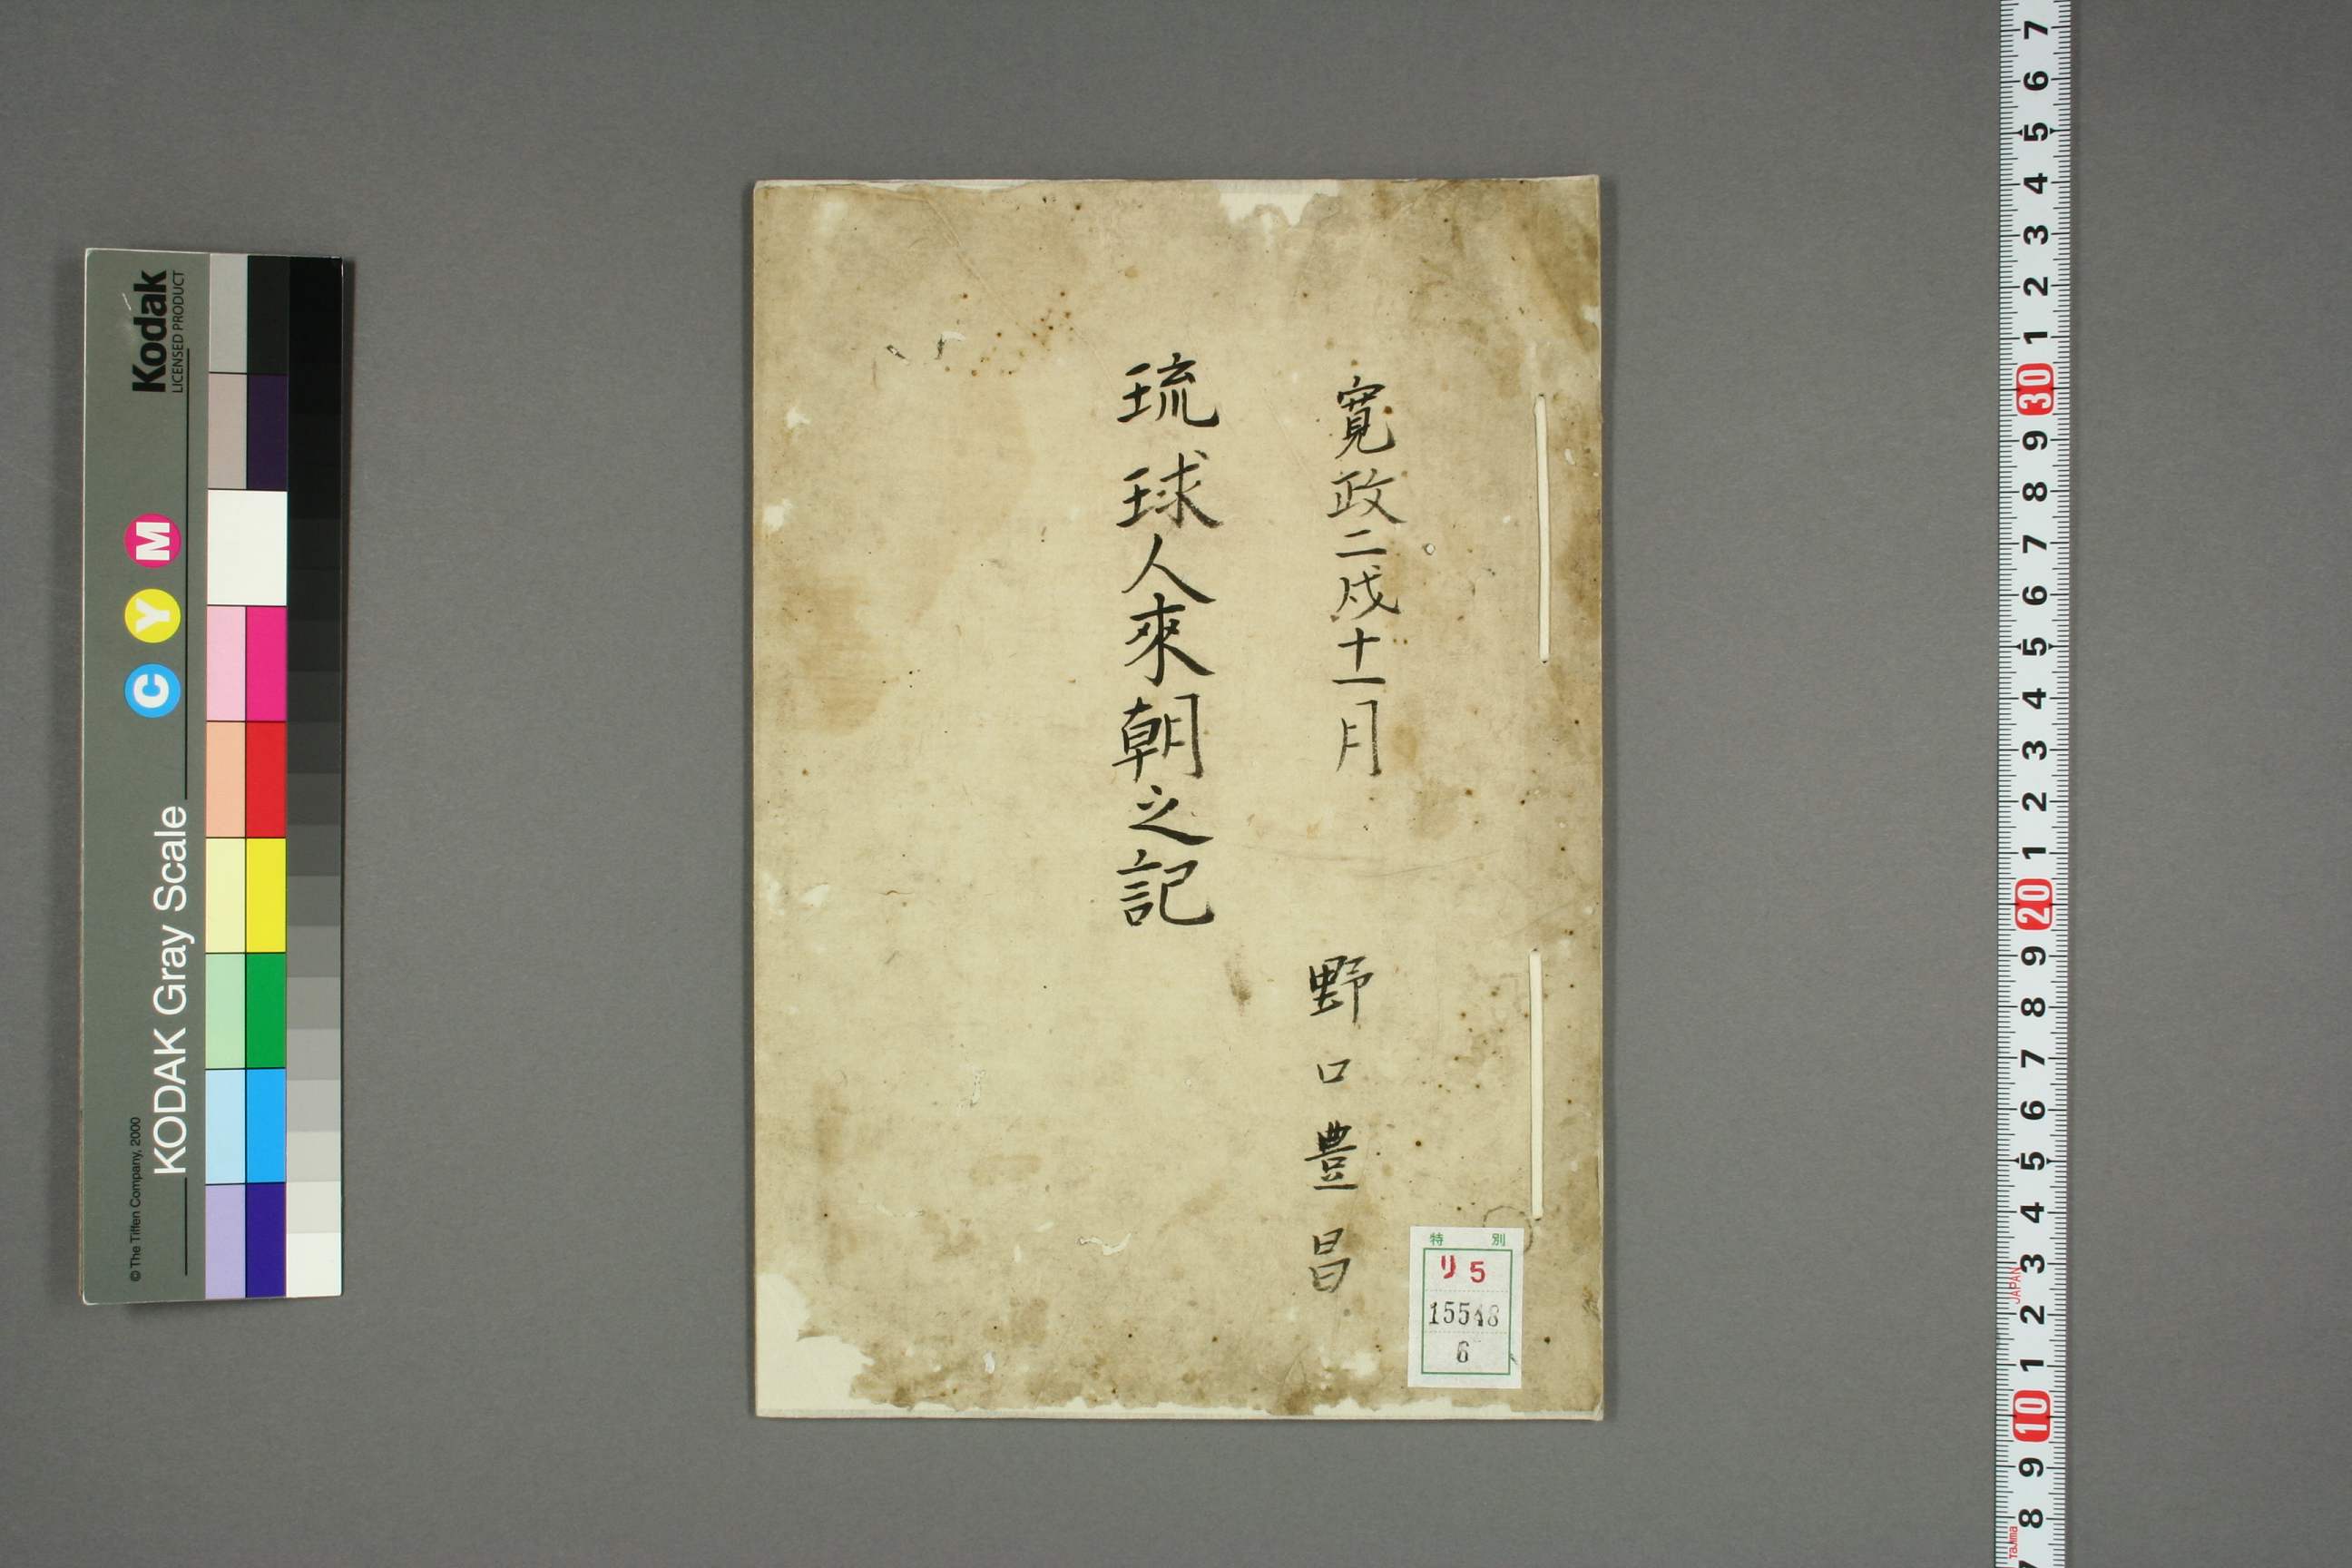 寛政二戌十一月
野口豊昌
琉球人來朝之記
特別
リ5
15548
6
Kodak
LICENSED PRODUCT
C Y M
KODAK Gray Scale
© The Tiffen Company, 2000
7 6 5 4 3 2 1 30 9 8 7 6 5 4 3 2 1 20 9 8 7 6 5 4 3 2 1 10 9 8
JAPAN
Tajima